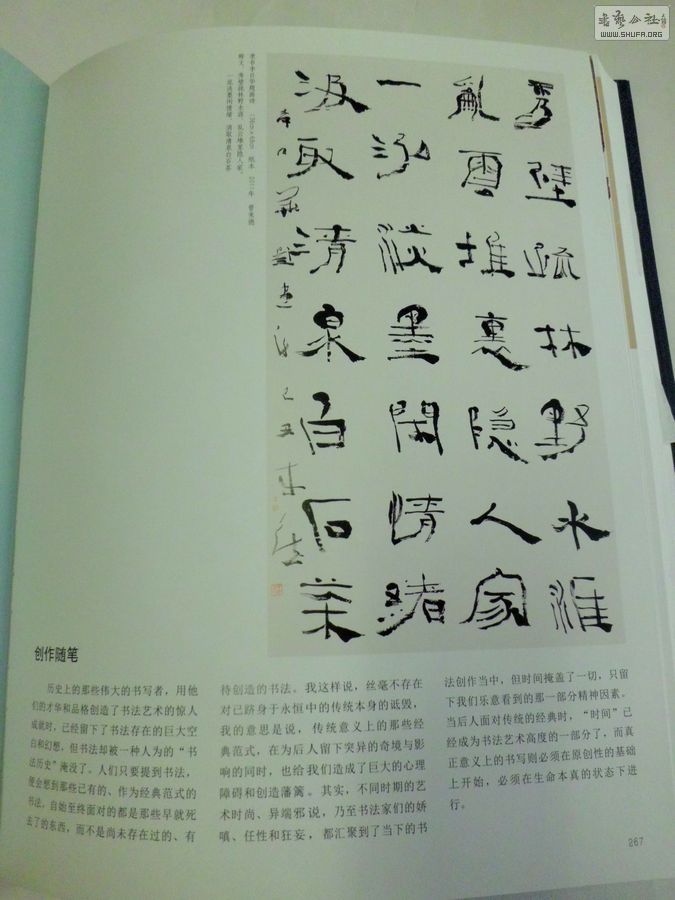 书艺公社
WWW.SHUFA.ORG
秀壁疏林野水涯
亂雲堆裏隐人家
一泓淡墨閑情緒
汲取清泉白石茶
李日華題畫詩 己丑來德
释文：秀壁疏林野水涯，乱云堆里隐人家。
一泓淡墨闲情绪，汲取清泉白石茶
创作随笔
历史上的那些伟大的书写者，用他
们的才华和品格创造了书法艺术的惊人
成就时，已经留下了书法存在的巨大空
白和幻想，但书法却被一种人为的“书
法历史”淹没了。人们只要提到书法，
便会想到那些已有的、作为经典范式的
书法，自始至终面对的都是那些早就死
去了的东西，而不是尚未存在过的、有
待创造的书法。我这样说，丝毫不存在
对已跻身于永恒中的传统本身的诋毁，
我的意思是说，传统意义上的那些经
典范式，在为后人留下突异的奇境与影
响的同时，也给我们造成了巨大的心理
障碍和创造藩篱。其实，不同时期的艺
术时尚、异端邪说，乃至书法家们的娇
嗔、任性和狂妄，都汇聚到了当下的书
法创作当中，但时间掩盖了一切，只留
下我们乐意看到的那一部分精神因素。
当后人面对传统的经典时，“时间”已
经成为书法艺术高度的一部分了，而真
正意义上的书写则必须在原创性的基础
上开始，必须在生命本真的状态下进
行。
267